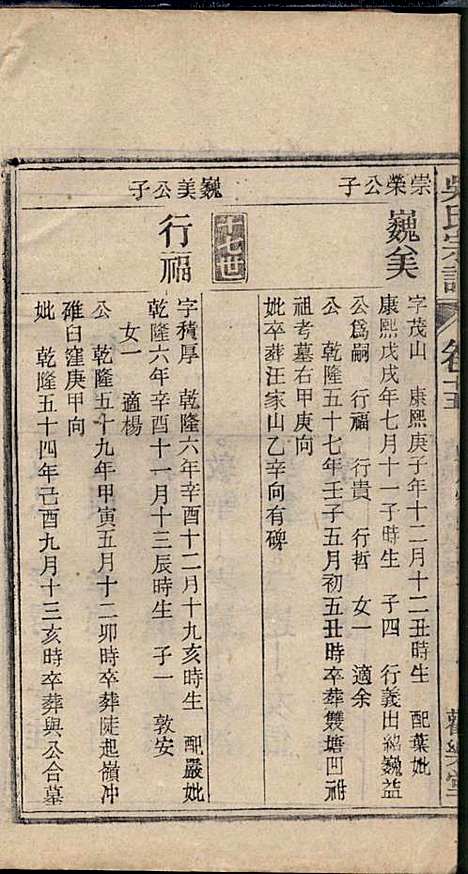 吳氏宗譜 卷十五
崇榮公子
巍美
字茂山 康熙庚子年十二月十二丑時生 配葉妣
康熙戊戌年七月十一子時生 子四 行義出紹巍益
公爲嗣 行福 行貴 行哲 女一 適余
公 乾隆五十七年壬子五月初五丑時卒葬雙塘凹祔
祖考墓右甲庚向
妣卒葬汪家山乙辛向有碑
十七世
巍美公子
行福
字積厚 乾隆六年辛酉十二月十九亥時生 配嚴妣
乾隆六年辛酉十一月十三辰時生 子一 敦安
女一 適楊
公 乾隆五十九年甲寅五月十二卯時卒葬陡起嶺冲
碓臼窪庚甲向
妣 乾隆五十四年己酉九月十三亥時卒葬與公合墓